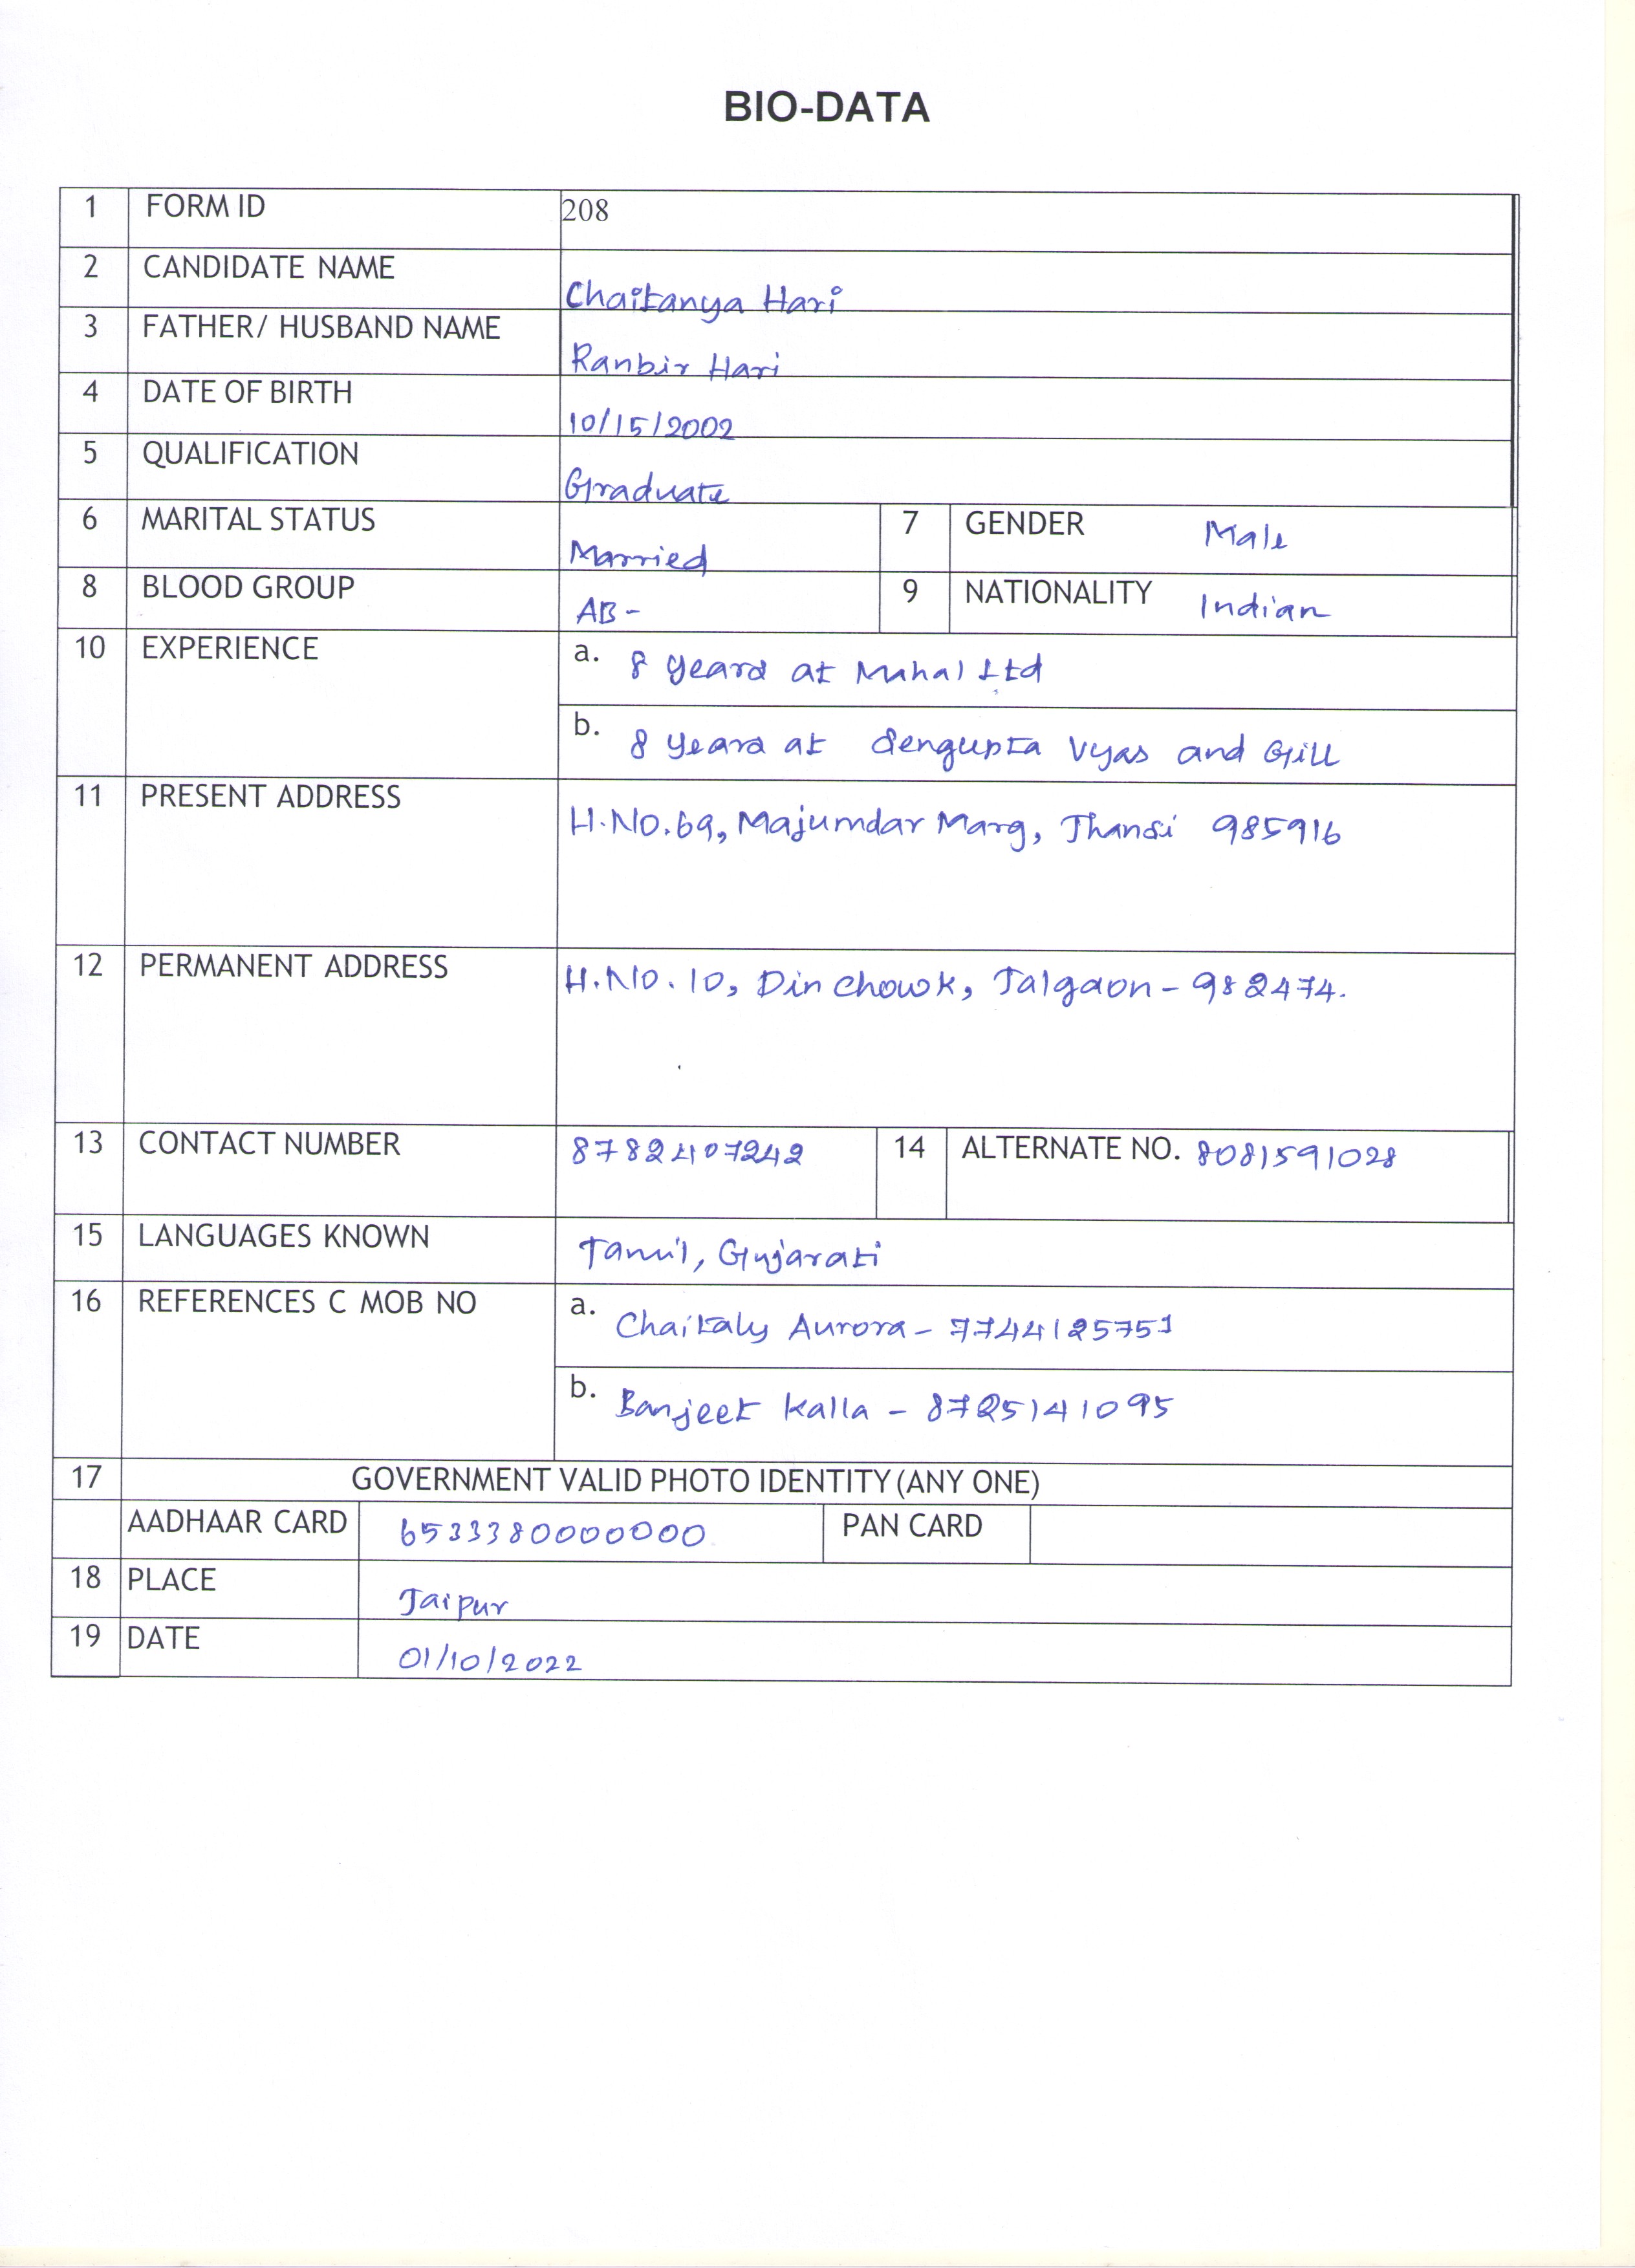 BIO-DATA
1 FORM ID 208
2 CANDIDATE NAME Chaitanya Hari
3 FATHER/ HUSBAND NAME Ranbir Hari
4 DATE OF BIRTH 10/15/2002
5 QUALIFICATION Graduate
6 MARITAL STATUS Married 7 GENDER Male
8 BLOOD GROUP AB- 9 NATIONALITY Indian
10 EXPERIENCE a. 8 years at Mahal Ltd
b. 8 years at Sengupta Vyas and Gill
11 PRESENT ADDRESS H.No.69, Majumdar Marg, Jhansi 985916
12 PERMANENT ADDRESS H.No.10, Din chowk, Jalgaon - 982474.
13 CONTACT NUMBER 8782407242 14 ALTERNATE NO. 8081591028
15 LANGUAGES KNOWN Tamil, Gujarati
16 REFERENCES C MOB NO a. Chaitaly Aurora - 7744125751
b. Banjeet Kalla - 8725141095
17 GOVERNMENT VALID PHOTO IDENTITY (ANY ONE)
AADHAAR CARD 6533380000000 PAN CARD
18 PLACE Jaipur
19 DATE 01/10/2022